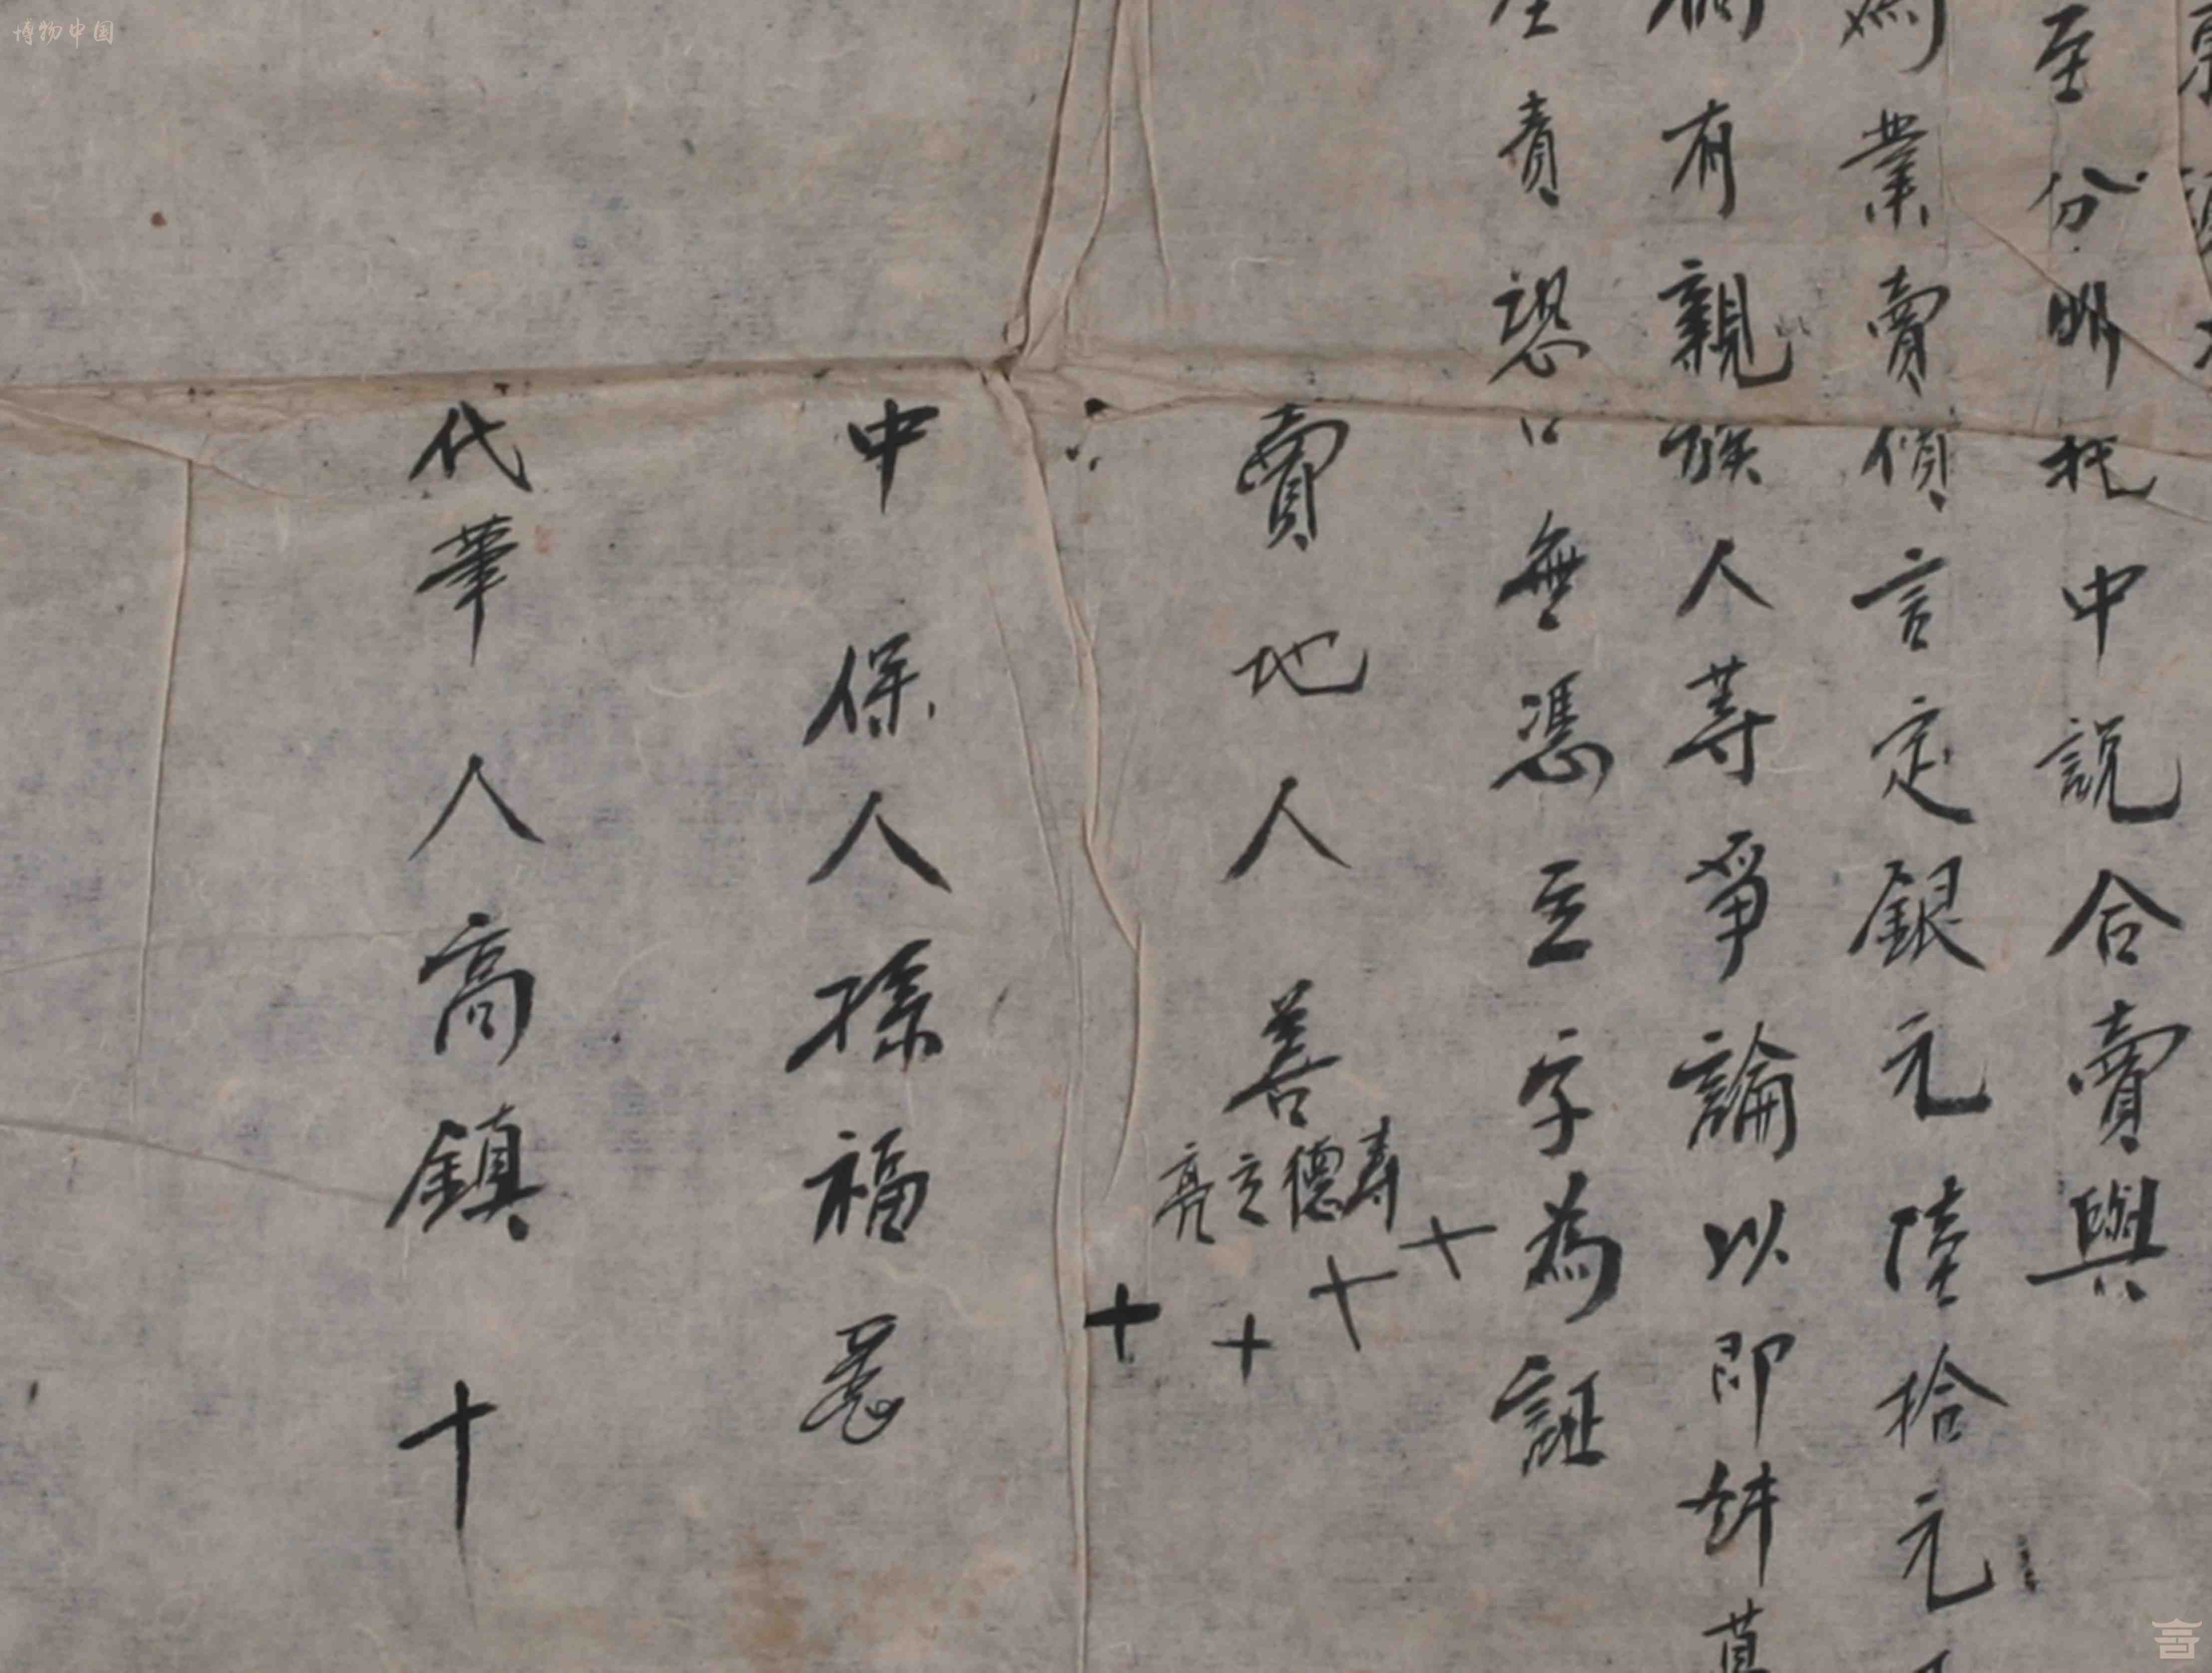 至份明托中說合賣與
為業賣價言定銀元陸拾元
有親族人等爭論以即
責恐口無憑立字為証
賣地人 善
壽 德 立 亮
十 十 十 十
中保人孫福
代筆人高鎮 十
博物中国